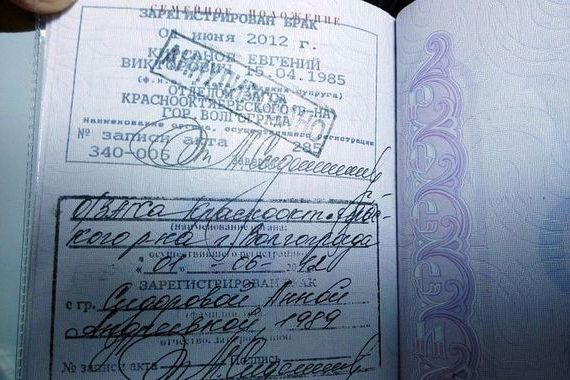 СЕМЕЙНОЕ ПОЛОЖЕНИЕ
ЗАРЕГИСТРИРОВАН БРАК
01 июня 2012 г.
ЕВГЕНИЙ
ВИКТОРОВИЧ 15.04.1985
супруга)
ОТДЕЛОМ ЗАГСА
КРАСНООКТЯБРЬСКОГО Р-НА
ГОР. ВОЛГОГРАДА
Наименование органа, осуществившего регистрацию
№ записи акта 285
340-006 Заверено
О/ЗАГСА Краснооктябрьс-
кого р-на г. Волгограда
(наименование органа:
осуществившего регистрацию)
"01" - 06 - 2012
ЗАРЕГИСТРИРОВАН БРАК
с гр. Сидоровой Анной
Андреевной, 1989
отчество, дата рождения
№ записи акта Подпись